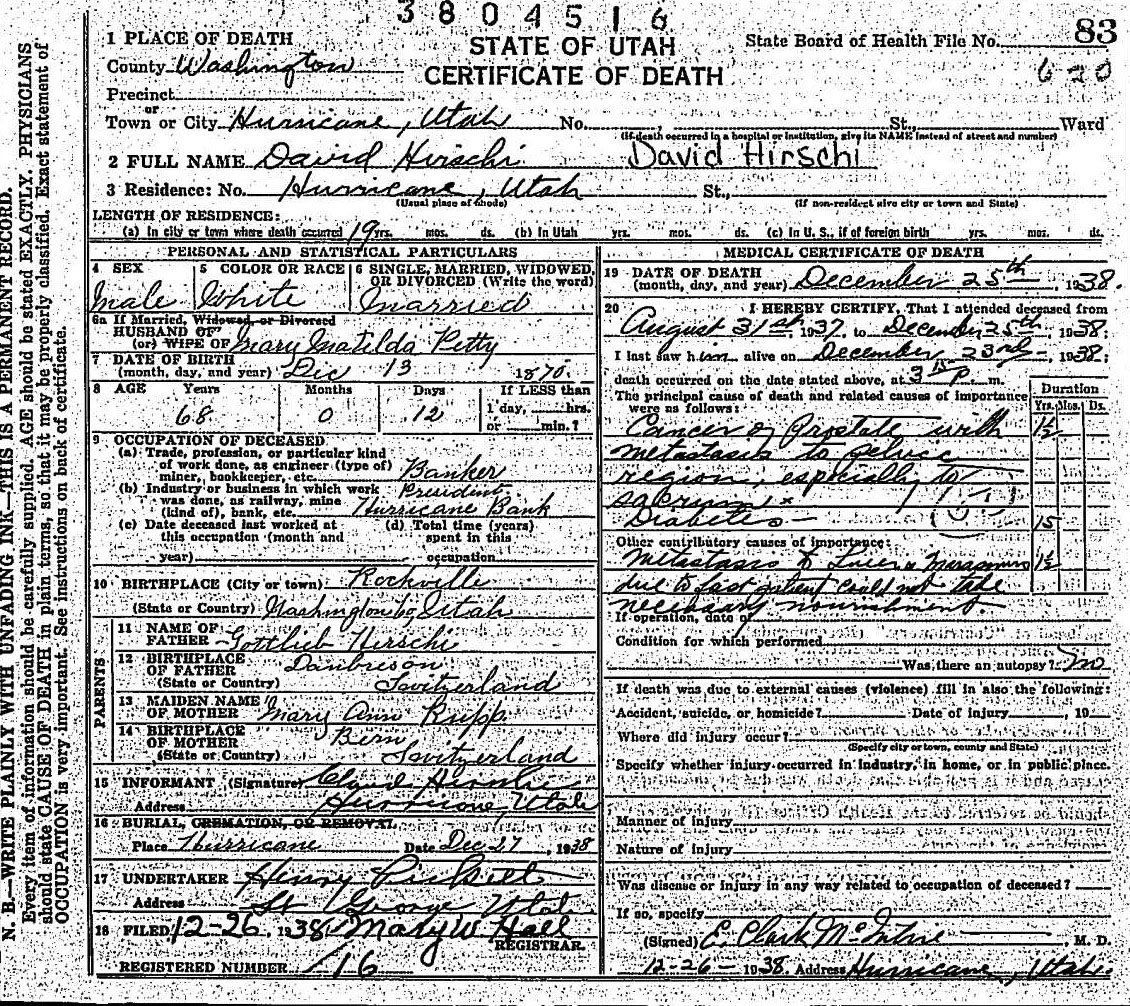 3804516
83
1 PLACE OF DEATH
STATE OF UTAH
State Board of Health File No.
County Washington
CERTIFICATE OF DEATH
620
Precinct
or
Town or City Hurricane, Utah No. St., Ward
(If death occurred in a hospital or institution, give its NAME instead of street and number)
2 FULL NAME David Hirschi David Hirschi
3 Residence: No. Hurricane, Utah St.,
(Usual place of abode) (If non-resident give city or town and State)
LENGTH OF RESIDENCE:
(a) In city or town where death occurred 19 yrs. mos. ds. (b) In Utah yrs. mos. ds. (c) In U. S., if of foreign birth yrs. mos. ds.
PERSONAL AND STATISTICAL PARTICULARS
4 SEX 5 COLOR OR RACE 6 SINGLE, MARRIED, WIDOWED,
OR DIVORCED (Write the word)
Male White Married
6a If Married, Widowed, or Divorced
HUSBAND OF
(or) WIFE OF Mary Matilda Petty
7 DATE OF BIRTH
(month, day, and year) Dec 13 1870.
8 AGE Years Months Days If LESS than
68 0 12 1 day, hrs.
or min.?
9 OCCUPATION OF DECEASED
(a) Trade, profession, or particular kind
of work done, as engineer (type of)
miner, bookkeeper, etc. Banker
(b) Industry or business in which work President
was done, as railway, mine
(kind of), bank, etc. Hurricane Bank
(c) Date deceased last worked at (d) Total time (years)
this occupation (month and spent in this
year) occupation
10 BIRTHPLACE (City or town) Rockville
(State or Country) Washington Co, Utah
PARENTS
11 NAME OF
FATHER Gottlieb Hirschi
12 BIRTHPLACE
OF FATHER
(State or Country) Switzerland
13 MAIDEN NAME
OF MOTHER Mary Ann
14 BIRTHPLACE Bern
OF MOTHER
(State or Country) Switzerland
15 INFORMANT (Signature) Hirschi
Address Hurricane, Utah
16 BURIAL, CREMATION, OR REMOVAL
Place Hurricane Date Dec 27, 1938
17 UNDERTAKER Henry
Address St George Utah
18 FILED 12-26, 1938 Mary W. Hall
REGISTRAR.
REGISTERED NUMBER 16
MEDICAL CERTIFICATE OF DEATH
19 DATE OF DEATH
(month, day, and year) December 25th, 1938.
20 I HEREBY CERTIFY, That I attended deceased from
August 31st, 1937, to December 25th, 1938;
I last saw him alive on December 23rd, 1938;
death occurred on the date stated above, at 3 15 P. m.
The principal cause of death and related causes of importance
were as follows:
Duration
Yrs. Mos. Ds.
Cancer of Prostate with 1½
metastasis to pelvic
region, especially to
sacrum
Diabetes 15
Other contributory causes of importance:
Metastasis to Liver & Marasmus 1½
due to fact patient could not take
necessary nourishment.
If operation, date of
Condition for which performed
Was there an autopsy? No
If death was due to external causes (violence) fill in also the following:
Accident, suicide, or homicide? Date of injury , 19
Where did injury occur?
(Specify city or town, county and State)
Specify whether injury occurred in industry, in home, or in public place.
Manner of injury
Nature of injury
Was disease or injury in any way related to occupation of deceased?
If so, specify
(Signed) E. Clark McIntire, M. D.
12-26-1938, Address Hurricane, Utah
N. B.—WRITE PLAINLY WITH UNFADING INK—THIS IS A PERMANENT RECORD.
Every item of information should be carefully supplied. AGE should be stated EXACTLY. PHYSICIANS
should state CAUSE OF DEATH in plain terms, so that it may be properly classified. Exact statement of
OCCUPATION is very important. See instructions on back of certificate.